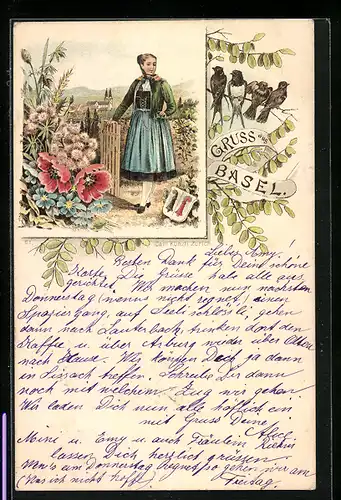 GRUSS aus
BASEL.
Liebes Amy!
Besten Dank für Deine schöne
Karte. Die Grüsse habe alle aus
gerichtet. Wir machen nun nächsten
Donnerstag (wenns nicht regnet) einen
Spaziergang, auf Seelischlössli, gehen
dann nach Lauterbach, trinken dort den
Kaffe, u über Arburg wieder über Olten
nach Hause. Wir könnten Dich ja dann
in Sissach treffen. Schreibe Dir dann
noch mit welchem Zug wir gehen.
Wir laden Dich nun alle höflich ein
mit Gruss Deine
Alice
Mimi u. Emy u. auch Fräulein
lassen Dich herzlich grüssen
Wenn's am Donnerstag regnet so gehen wir am
(Was ich nicht hoff) Freitag.